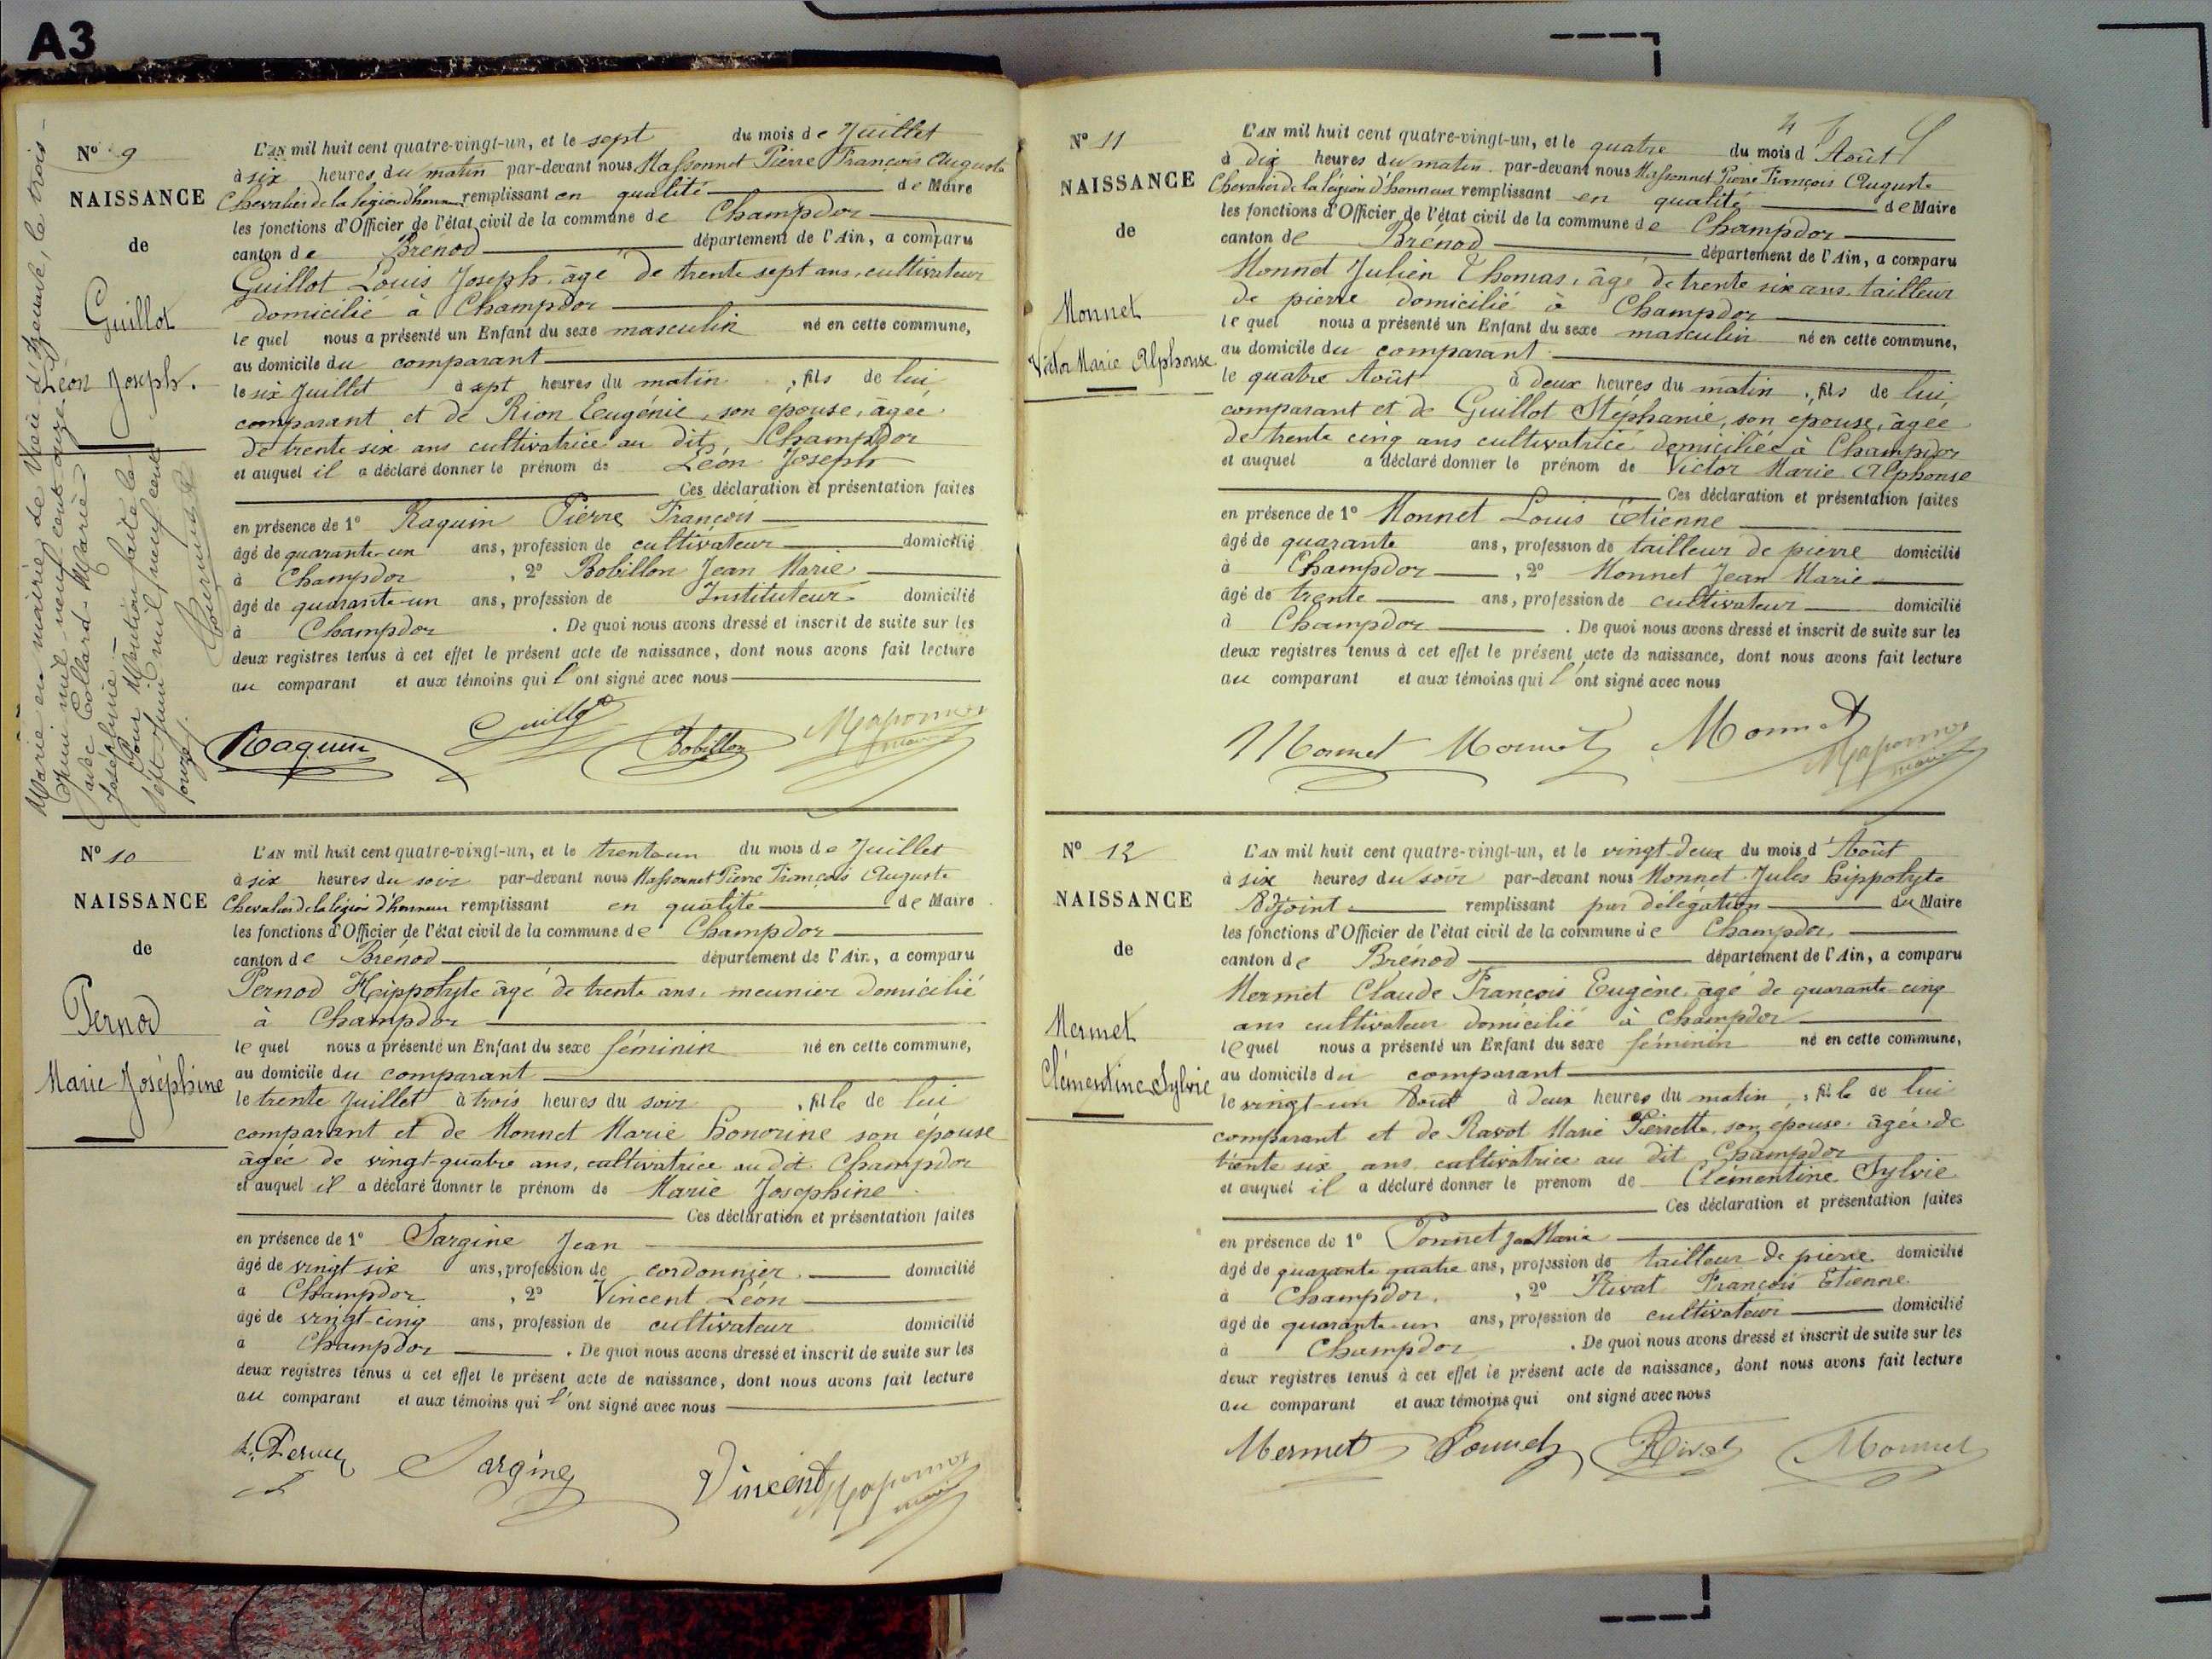 A3
N° 9
NAISSANCE
de
Guillot
Léon Joseph.
L'AN mil huit cent quatre-vingt-un, et le sept du mois de Juillet
à six heures du matin par-devant nous Massonnet Pierre François Auguste
Chevalier de la légion d'honneur remplissant en qualité de Maire
les fonctions d'Officier de l'état civil de la commune de Champdor
canton de Brénod département de l'Ain, a comparu
Guillot Louis Joseph, âgé de trente sept ans, cultivateur
domicilié à Champdor
le quel nous a présenté un Enfant du sexe masculin né en cette commune,
au domicile du comparant
le six Juillet à sept heures du matin, fils de lui
comparant et de Rion Eugénie, son épouse, âgée
de trente six ans cultivatrice au dit Champdor
et auquel il a déclaré donner le prénom de Léon Joseph
Ces déclaration et présentation faites
en présence de 1° Raquin Pierre François
âgé de quarante-un ans, profession de cultivateur domicilié
à Champdor, 2° Bobillon Jean Marie
âgé de quarante-un ans, profession de Instituteur domicilié
à Champdor. De quoi nous avons dressé et inscrit de suite sur les
deux registres tenus à cet effet le présent acte de naissance, dont nous avons fait lecture
au comparant et aux témoins qui l'ont signé avec nous
Raquin Guillot Bobillon Massonnet
maire
Marié en mairie de Vieu d'Izenave, le trois
Juin mil neuf cent onze
avec Collard Marie
Joséphine
Pour Mention faite le
sept Juin mil neuf cent
onze.
N° 10
NAISSANCE
de
Pernod
Marie Joséphine
L'AN mil huit cent quatre-vingt-un, et le trente un du mois de Juillet
à six heures du soir par-devant nous Massonnet Pierre François Auguste
Chevalier de la légion d'honneur remplissant en qualité de Maire
les fonctions d'Officier de l'état civil de la commune de Champdor
canton de Brénod département de l'Ain, a comparu
Pernod Hippolyte âgé de trente ans, meunier domicilié
à Champdor
le quel nous a présenté un Enfant du sexe féminin né en cette commune,
au domicile du comparant
le trente Juillet à trois heures du soir, fille de lui
comparant et de Monnet Marie honorine son épouse
âgée de vingt-quatre ans, cultivatrice au dit Champdor
et auquel il a déclaré donner le prénom de Marie Josephine
Ces déclaration et présentation faites
en présence de 1° Sargine Jean
âgé de vingt six ans, profession de cordonnier domicilié
à Champdor, 2° Vincent Léon
âgé de vringt-cinq ans, profession de cultivateur domicilié
à Champdor. De quoi nous avons dressé et inscrit de suite sur les
deux registres tenus à cet effet le présent acte de naissance, dont nous avons fait lecture
au comparant et aux témoins qui l'ont signé avec nous
Sargine Vincent Massonnet
maire
4
N° 11
NAISSANCE
de
Monnet
Victor Marie Alphonse
L'AN mil huit cent quatre-vingt-un, et le quatre du mois d'Août
à dix heures du matin par-devant nous Massonnet Pierre François Auguste
Chevalier de la légion d'honneur remplissant en qualité de Maire
les fonctions d'Officier de l'état civil de la commune de Champdor
canton de Brénod département de l'Ain, a comparu
Monnet Julien Thomas, âgé de trente six ans, tailleur
de pierre domicilié à Champdor
le quel nous a présenté un Enfant du sexe masculin né en cette commune,
au domicile du comparant
le quatre Août à deux heures du matin, fils de lui
comparant et de Guillot Stéphanie, son épouse, âgée
de trente cinq ans cultivatrice domiciliée à Champdor
et auquel a déclaré donner le prénom de Victor Marie Alphonse
Ces déclaration et présentation faites
en présence de 1° Monnet Louis Etienne
âgé de quarante ans, profession de tailleur de pierre domicilié
à Champdor, 2° Monnet Jean Marie
âgé de trente ans, profession de cultivateur domicilié
à Champdor. De quoi nous avons dressé et inscrit de suite sur les
deux registres tenus à cet effet le présent acte de naissance, dont nous avons fait lecture
au comparant et aux témoins qui l'ont signé avec nous
Monnet Monnet Monnet Massonnet
maire
N° 12
NAISSANCE
de
Mermet
Clémentine Sylvie
L'AN mil huit cent quatre-vingt-un, et le vingt-deux du mois d'Août
à six heures du soir par-devant nous Monnet Jules hippolyte
Adjoint remplissant par délégation du Maire
les fonctions d'Officier de l'état civil de la commune de Champdor
canton de Brénod département de l'Ain, a comparu
Mermet Claude François Eugène, âgé de quarante-cinq
ans cultivateur domicilié à Champdor
lequel nous a présenté un Enfant du sexe féminin né en cette commune,
au domicile du comparant
le vingt-un Août à deux heures du matin, fille de lui
comparant et de Ravot Marie Pierrette, son épouse, âgée de
trente six ans cultivatrice au dit Champdor
et auquel il a déclaré donner le prénom de Clémentine Sylvie
Ces déclaration et présentation faites
en présence de 1° Ponnet Jean Marie
âgé de quarante quatre ans, profession de tailleur de pierre domicilié
à Champdor, 2° Rivat François Etienne
âgé de quarante-un ans, profession de cultivateur domicilié
à Champdor. De quoi nous avons dressé et inscrit de suite sur les
deux registres tenus à cet effet le présent acte de naissance, dont nous avons fait lecture
au comparant et aux témoins qui ont signé avec nous
Mermet Ponnet Rivat Monnet